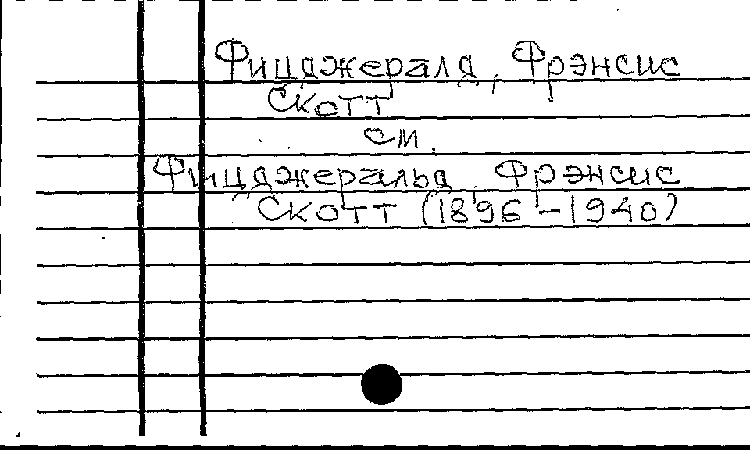 Фицджералд, Фрэнсис
Скотт
см.
Фицджеральд, Фрэнсис
Скотт (1896-1940)